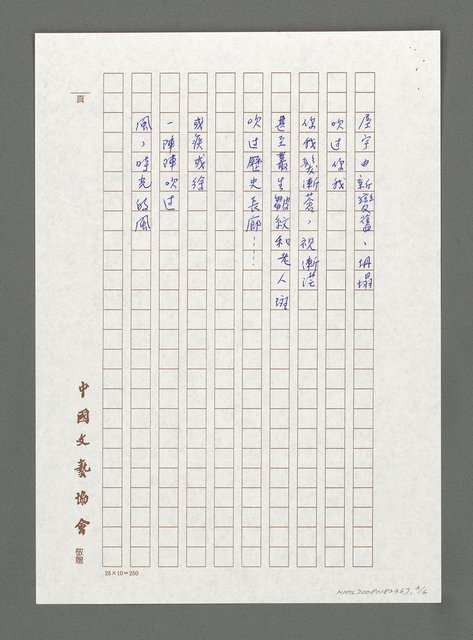 屋宇由新變舊、坍塌
吹过你我
你我髮漸蒼，視漸茫
甚至叢生皺紋和老人斑
吹过歷史長廊……
或疾或徐
一陣陣吹过
風，時光的風
頁
中國文藝協會
敬贈
25×10=250
NMTL20080182367, 2/6